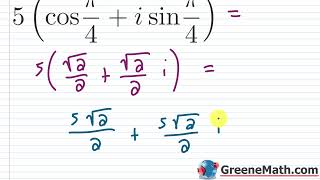 5 (cos π/4 + i sin π/4) =
5 (√2/2 + √2/2 i) =
5√2/2 + 5√2/2 i
GreeneMath.com